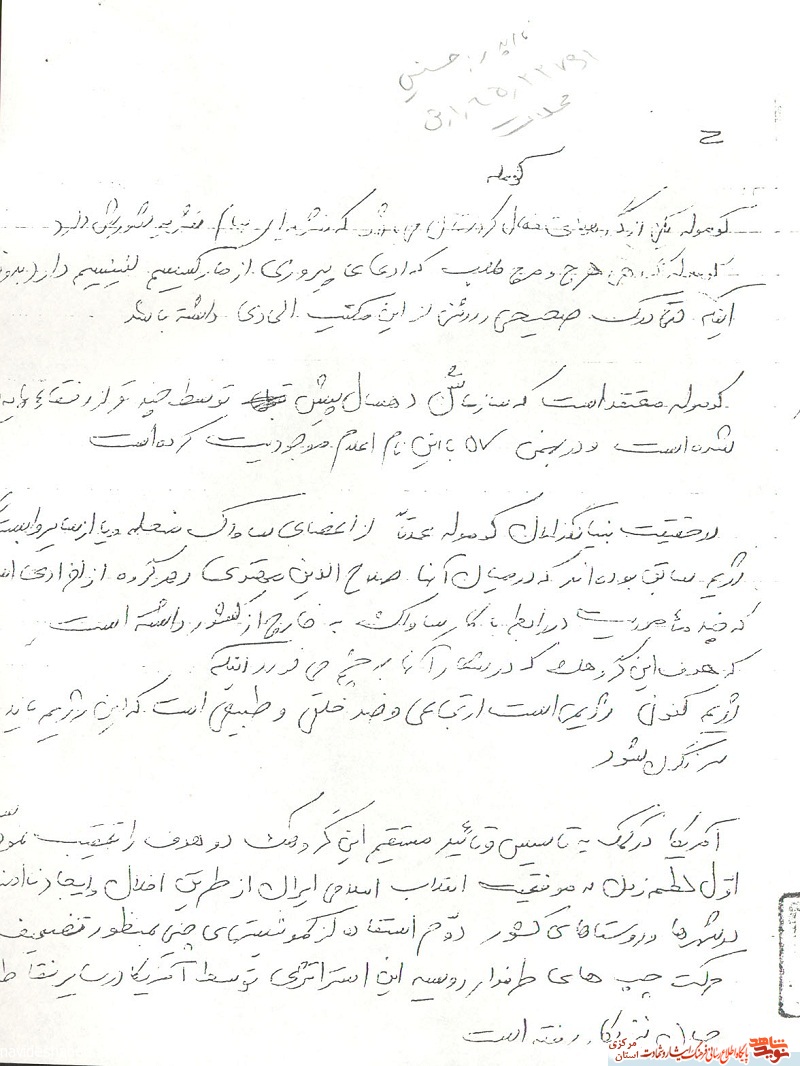 حسنی
محلات
ح
کومله
کوموله یکی از گروههای فعال کردستان می باشد که نشریه ای بنام نشریه شورش دارد
کوموله گروهی هرج و مرج طلب که ادعای پیروزی از مارکسیسم لنینیسم دارد (بدون
اینکه حتی درک صحیحی و روشن از این مکتب الحادی داشته باشد
کوموله معتقد است که سازمانش ده سال پیش توسط چند نفر از رفقا
شده است و در بهمن ۵۷ با این نام اعلام موجودیت کرده است
در حقیقت بنیانگذاران کوموله عمدتاً از اعضای ساواک منحله و یا از سایر وابستگان
رژیم سابق بوده اند که در میان آنها صلاح الدین مهتدی رهبر گروه از افرادی است
که چند مأموریت در رابطه با کار ساواک به خارج از کشور داشته است
که هدف این گروهک که در شعار آنها به چشم می خورد اینکه
رژیم کنونی رژیمی است ارتجاعی و ضد خلقی و طبقی است که این رژیم باید
سرنگون شود
آمریکا در کمک به تاسیس و تأیید مستقیم این گروهک دو هدف را تعقیب
اوّل لطمه زدن به موفقیت انقلاب اسلامی ایران از طریق اخلال و ایجاد ناامنی
در شهرها و روستاهای کشور دوّم استفاده از کمونیستهای چینی بمنظور تضعیف
حرکت چپ های طرفدار روسیه این استراتژی توسط آمریکا در سایر نقاط
جهان نیز بکار رفته است
نوید شاهد
پایگاه اطلاع رسانی فرهنگ ایثار و شهادت
استان مرکزی